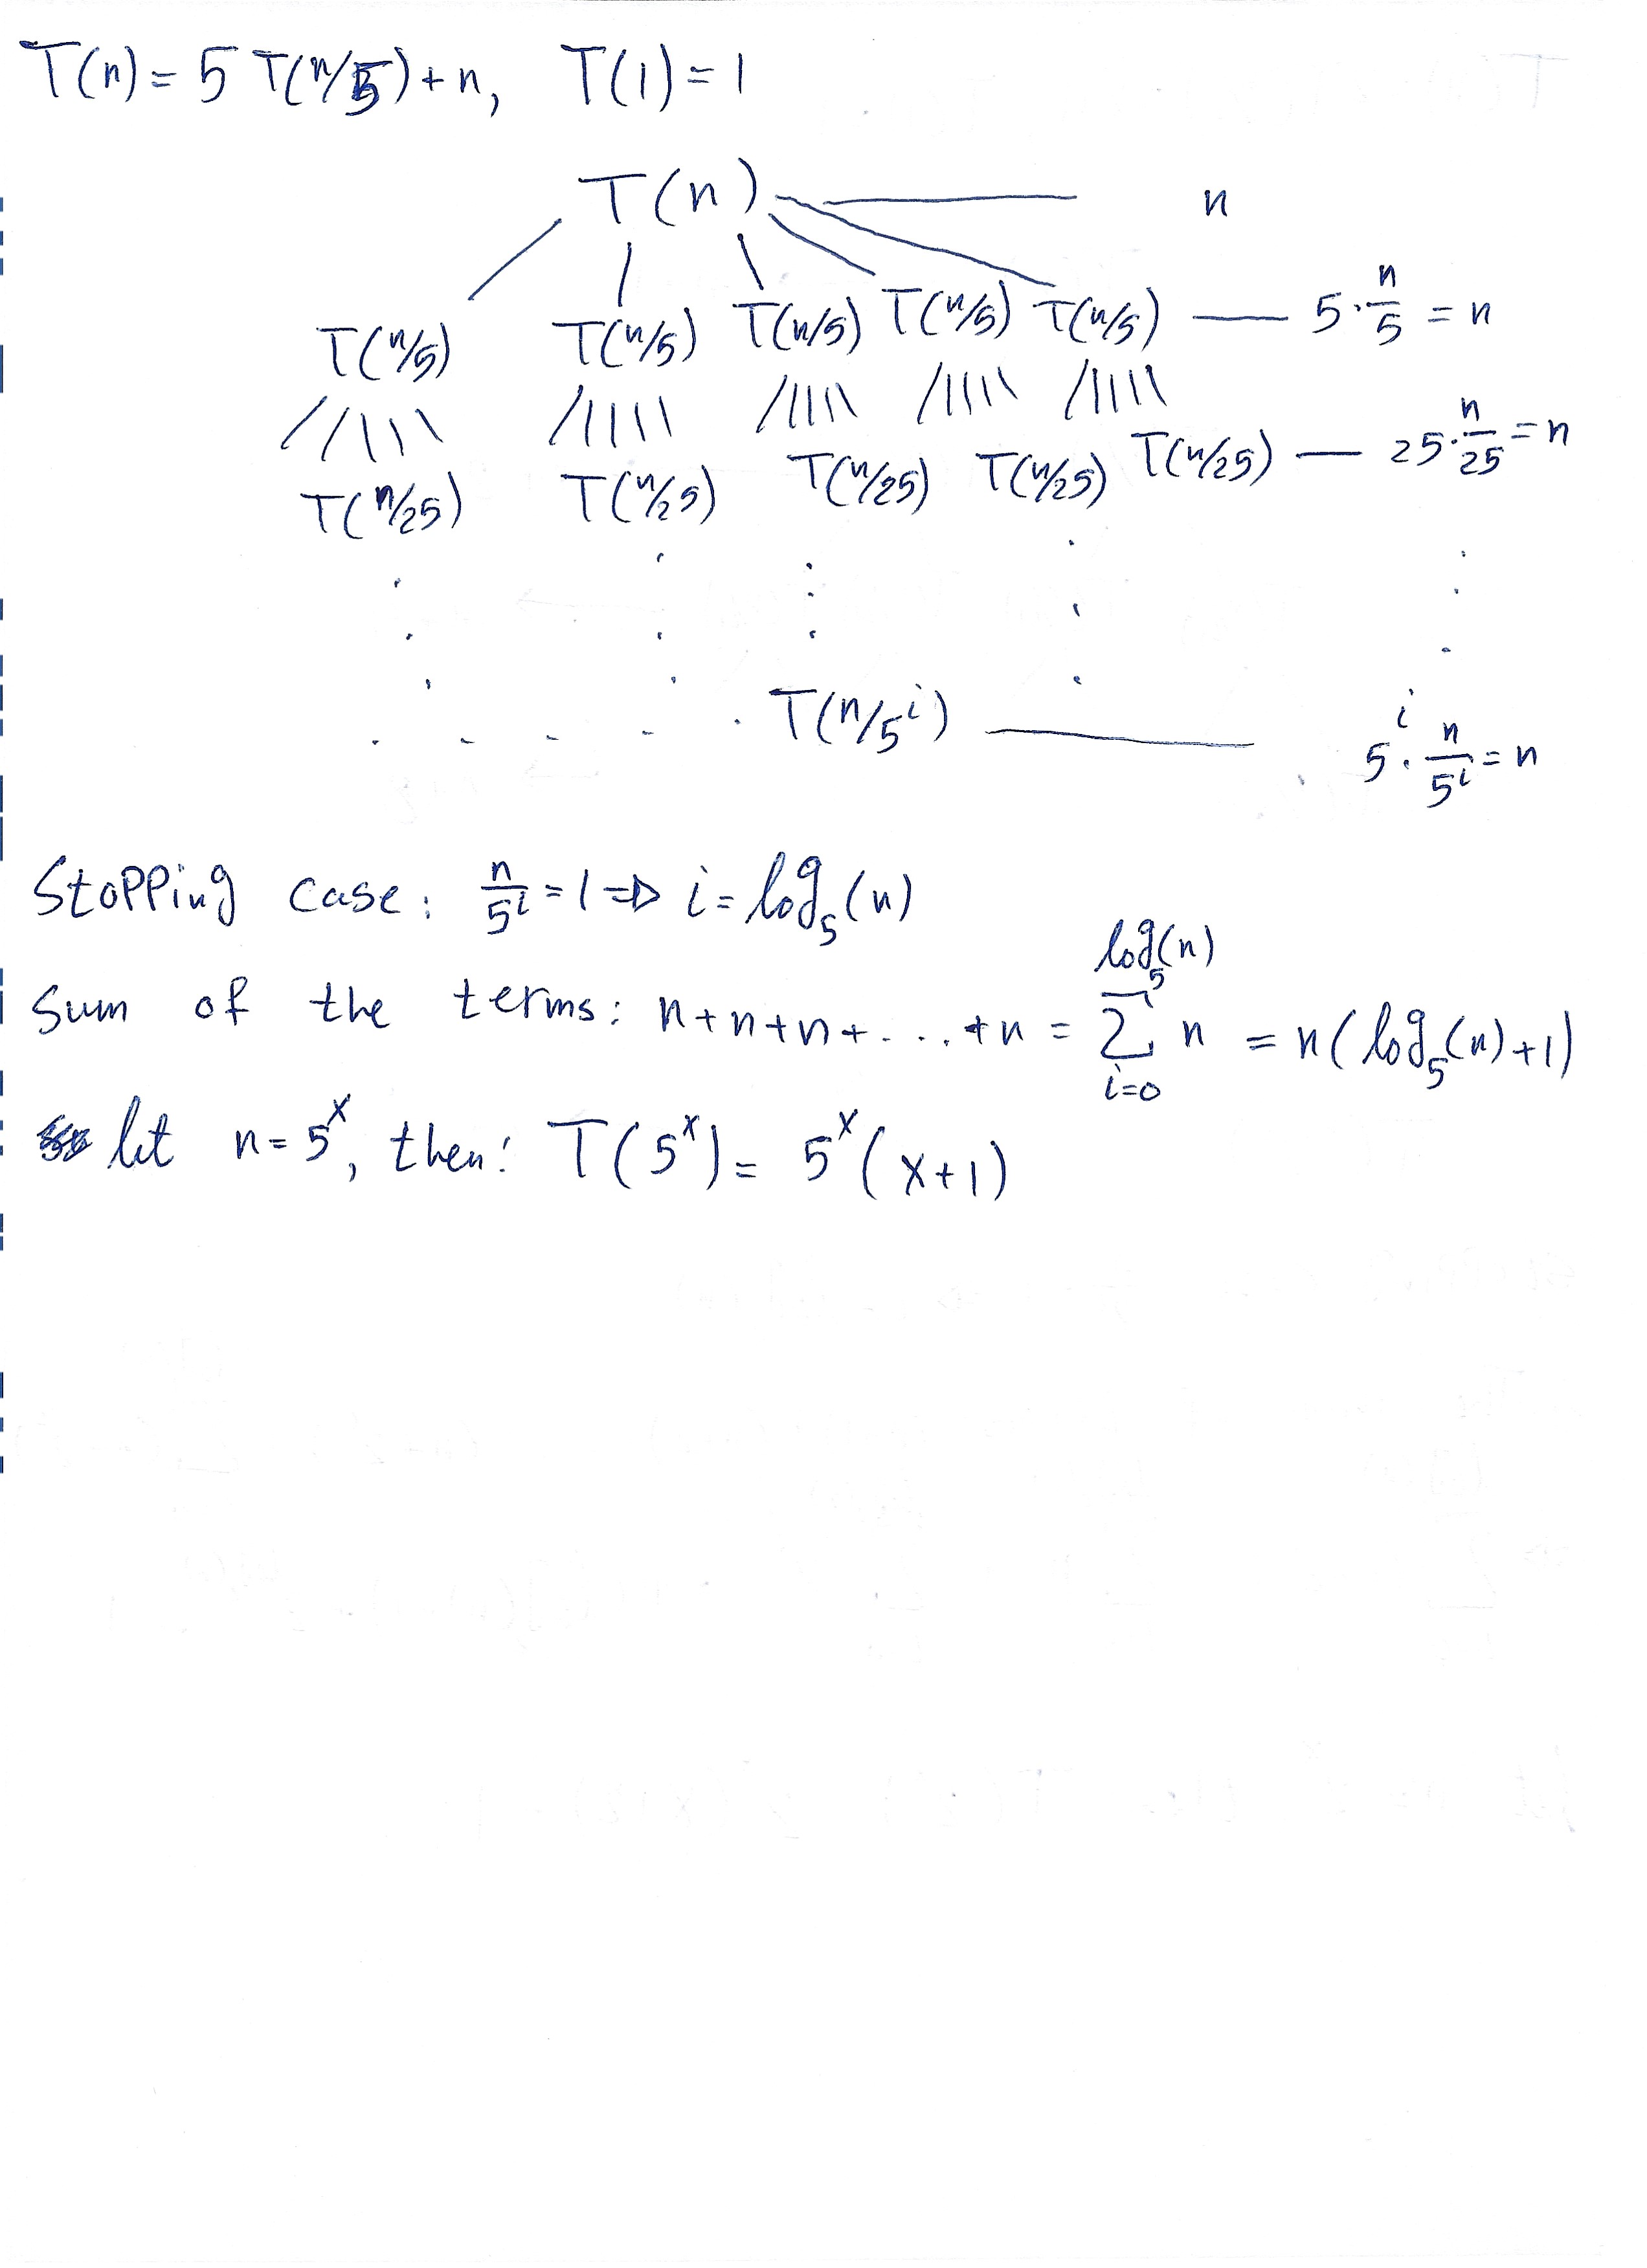 T(n) = 5 T(n/5) + n, T(1) = 1
T(n) n
T(n/5) T(n/5) T(n/5) T(n/5) T(n/5) — 5 · n/5 = n
T(n/25) T(n/25) T(n/25) T(n/25) T(n/25) — 25 · n/25 = n
T(n/5^i) 5^i · n/5^i = n
Stopping case: n/5^i = 1 => i = log_5(n)
Sum of the terms: n + n + n + . . . + n = ∑_{i=0}^{log_5(n)} n = n(log_5(n) + 1)
let n = 5^x, then: T(5^x) = 5^x(x+1)